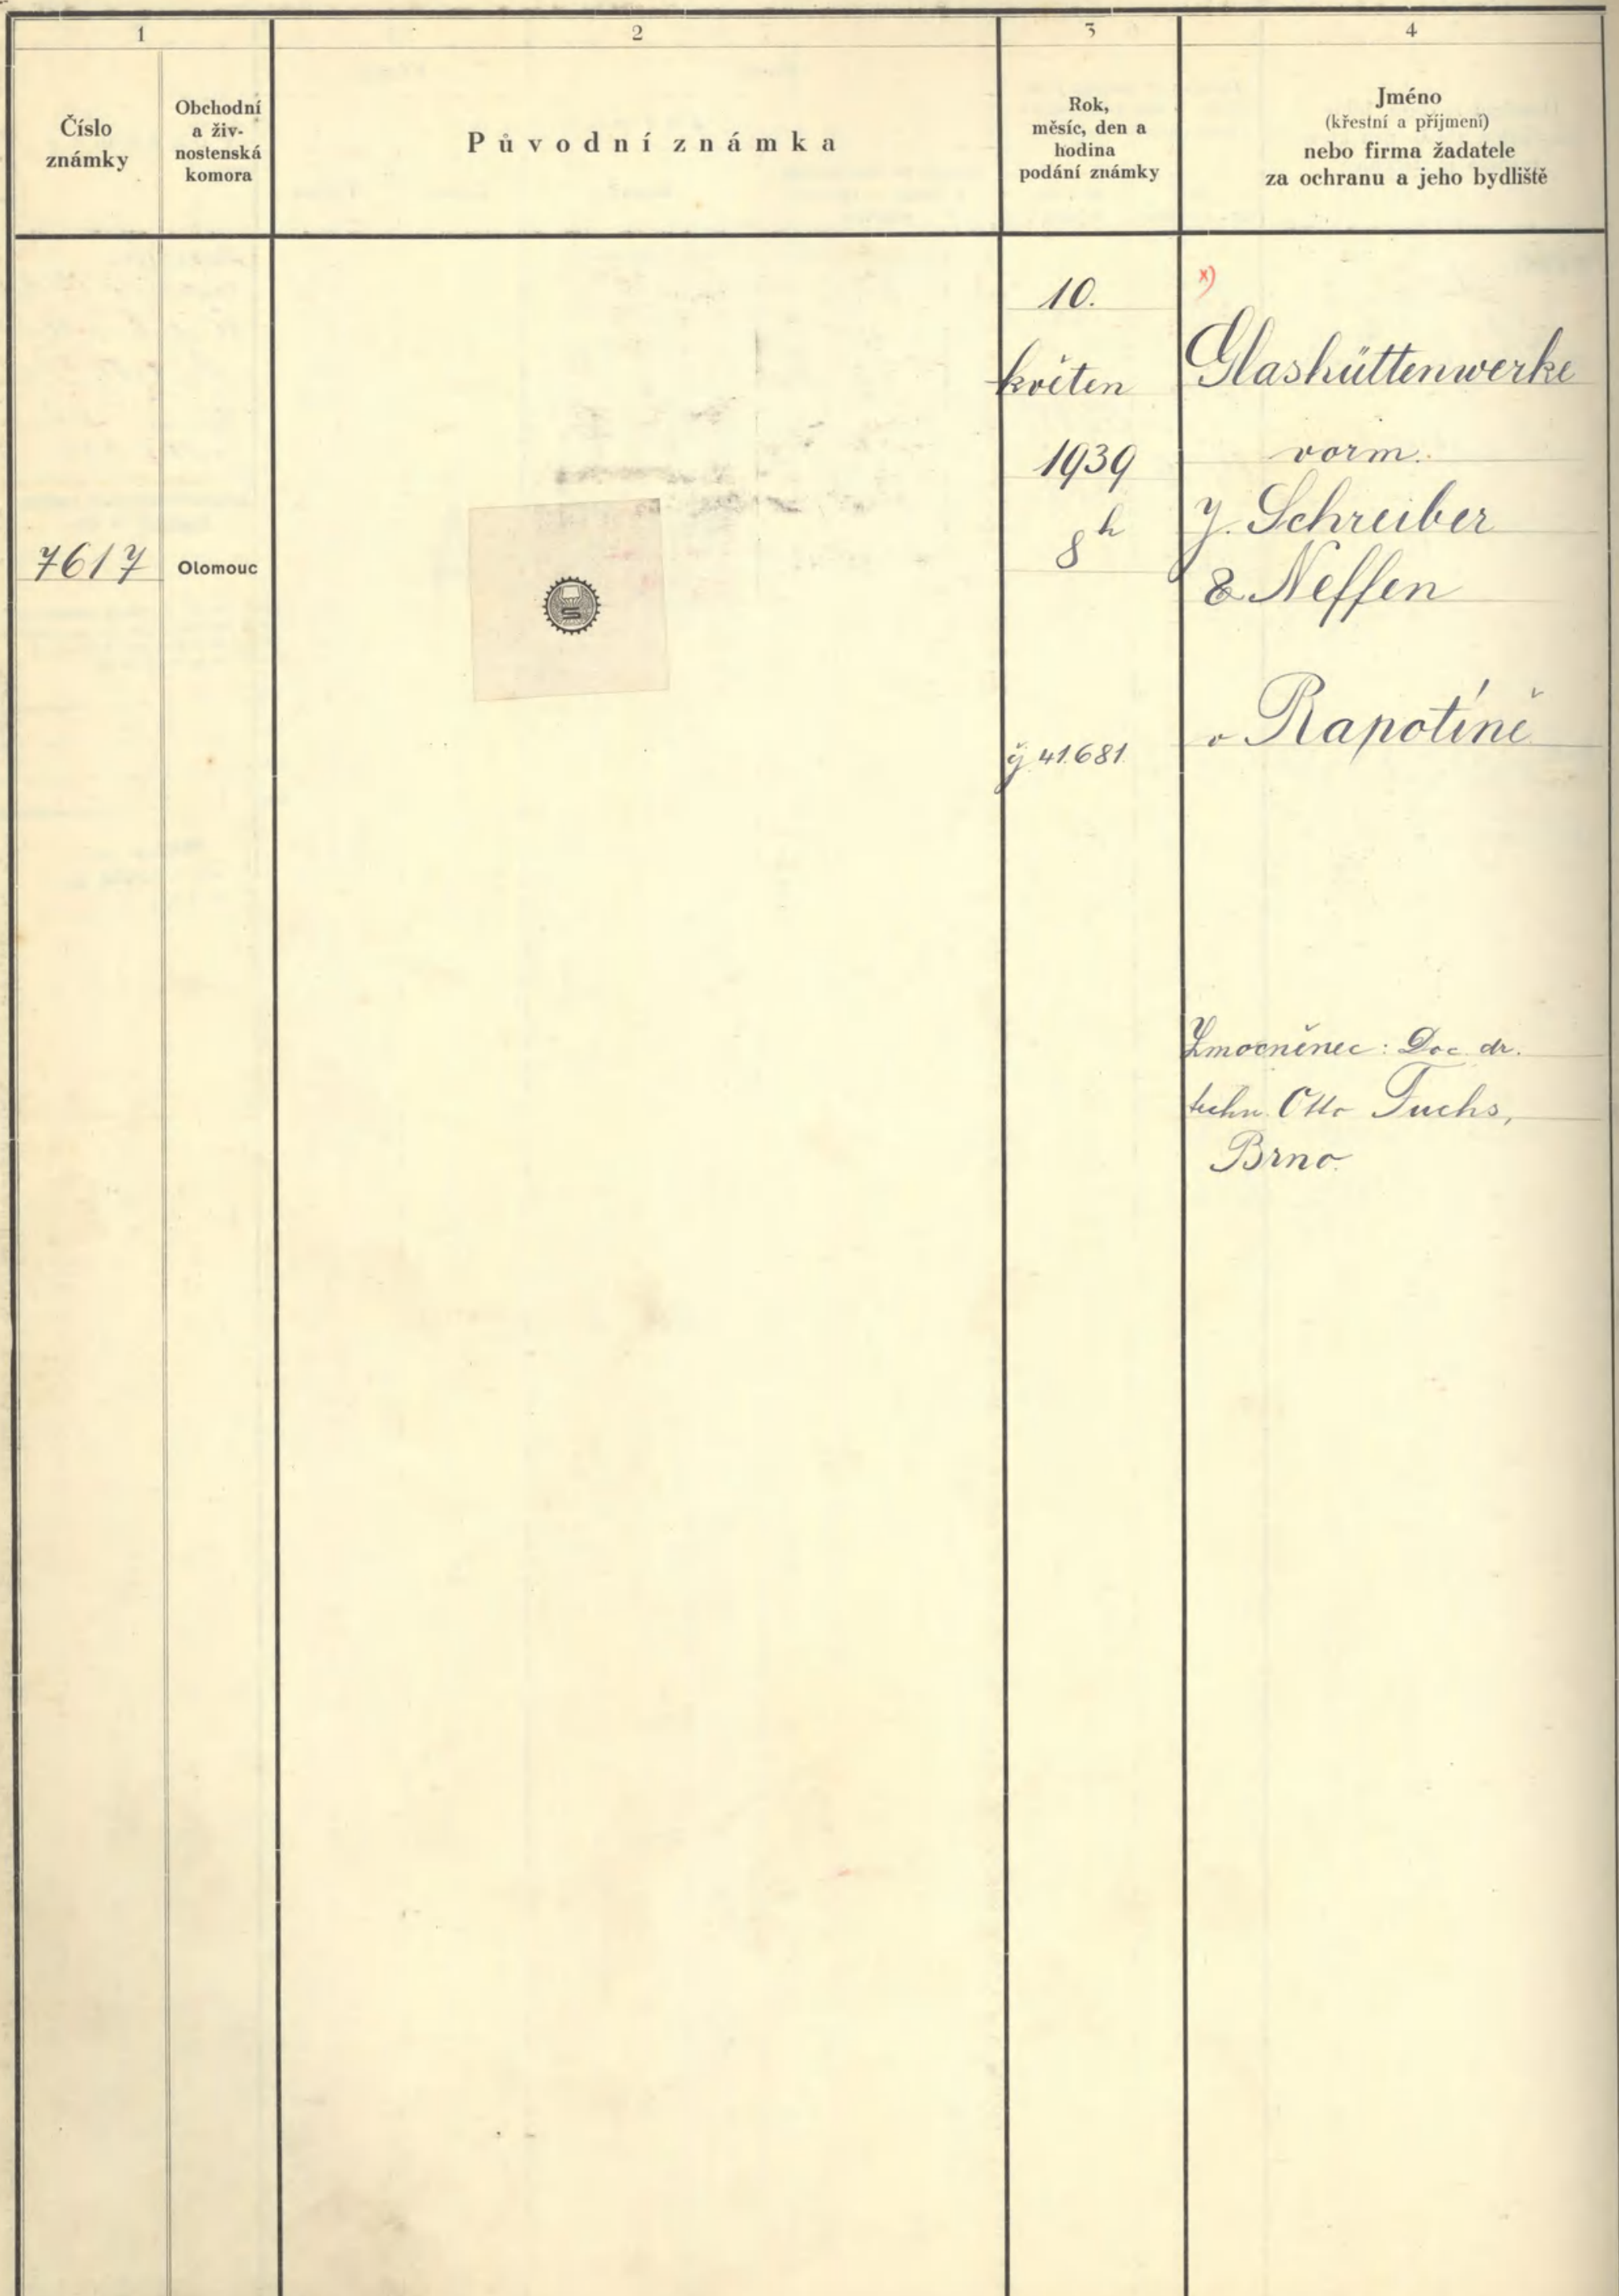 1
2
3
4
Číslo
známky
Obchodní
a živ-
nostenská
komora
Původní známka
Rok,
měsíc, den a
hodina
podání známky
Jméno
(křestní a příjmení)
nebo firma žadatele
za ochranu a jeho bydliště
7617
Olomouc
S
10.
květen
1939
8h
41.681
x)
Glashüttenwerke
vorm.
J. Schreiber
& Neffen
v Rapotíně
Zmocněnec: Doc. dr.
techn. Otto Fuchs,
Brno.